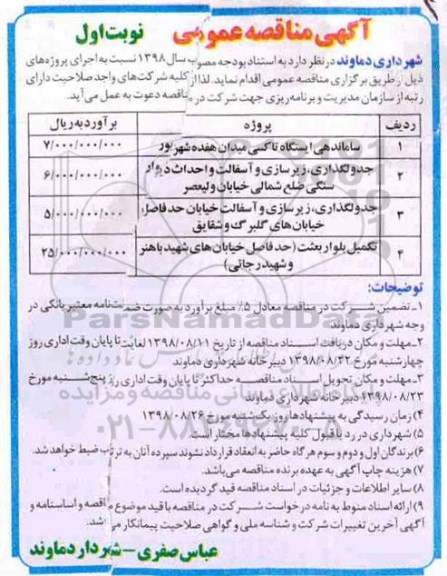 آگهی مناقصه عمومی نوبت اول
شهرداری دماوند در نظر دارد به استناد بودجه مصوب سال ۱۳۹۸ نسبت به اجرای پروژه‌های
ذیل از طریق برگزاری مناقصه عمومی اقدام نماید. لذا از کلیه شرکت‌های واجد صلاحیت دارای
رتبه از سازمان مدیریت و برنامه‌ریزی جهت شرکت در مناقصه دعوت به عمل می‌آید.
ردیف پروژه برآورد به ریال
۱ ساماندهی ایستگاه تاکسی میدان هفده شهریور ۷/۰۰۰/۰۰۰/۰۰۰
۲ جدولگذاری، زیرسازی و آسفالت و احداث دیوار ۶/۰۰۰/۰۰۰/۰۰۰
سنگی ضلع شمالی خیابان ولیعصر
۳ جدولگذاری، زیرسازی و آسفالت خیابان حدفاصل ۵/۰۰۰/۰۰۰/۰۰۰
خیابان‌های گلبرگ و شقایق
۴ تکمیل بلوار بعثت (حدفاصل خیابان‌های شهید باهنر ۲۵/۰۰۰/۰۰۰/۰۰۰
و شهید رجائی)
توضیحات:
۱ـ تضمین شرکت در مناقصه معادل ۵٪ مبلغ برآورد به صورت ضمانت‌نامه معتبر بانکی در
وجه شهرداری دماوند
۲ـ مهلت و مکان دریافت اسناد مناقصه از تاریخ ۱۳۹۸/۰۸/۱۱ لغایت تا پایان وقت اداری روز
چهارشنبه مورخ ۱۳۹۸/۰۸/۲۲ دبیرخانه شهرداری دماوند
۳ـ مهلت و مکان تحویل اسناد مناقصه حداکثر تا پایان وقت اداری روز پنج‌شنبه مورخ
۱۳۹۸/۰۸/۲۳ دبیرخانه شهرداری دماوند
۴) زمان رسیدگی به پیشنهادها روز یک‌شنبه مورخ ۱۳۹۸/۰۸/۲۶
۵) شهرداری در رد یا قبول کلیه پیشنهادها مختار است.
۶) برندگان اول و دوم و سوم هرگاه حاضر به انعقاد قرارداد نشوند سپرده آنان به ترتیب ضبط خواهد شد.
۷) هزینه چاپ آگهی به عهده برنده مناقصه می‌باشد.
۸) سایر اطلاعات و جزئیات در اسناد مناقصه قید گردیده است.
۹) ارائه اسناد منوط به نامه درخواست شرکت در مناقصه با قید موضوع مناقصه و اساسنامه و
آگهی آخرین تغییرات شرکت و شناسه ملی و گواهی صلاحیت پیمانکار می‌باشد.
عباس صفری – شهردار دماوند
ParsNamadData
۰۲۱-۸۸۳۴۹۶۷۰-۵